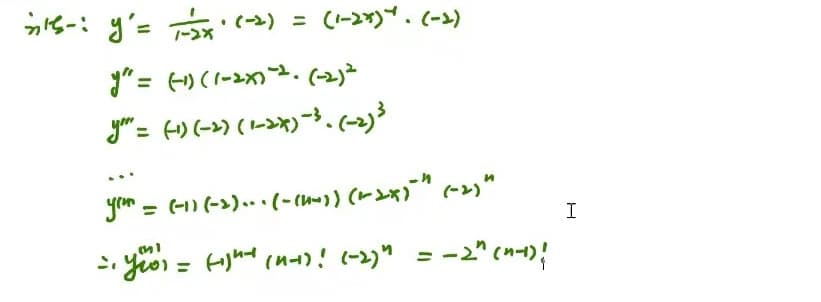 方法一: y' = 1/(1-2x) · (-2) = (1-2x)⁻¹ · (-2)
y'' = (-1)(1-2x)⁻² · (-2)²
y''' = (-1)(-2)(1-2x)⁻³ · (-2)³
...
y⁽ⁿ⁾ = (-1)(-2)···(-(n-1))(1-2x)⁻ⁿ (-2)ⁿ
∴ y⁽ⁿ⁾(0) = (-1)ⁿ⁻¹ (n-1)! (-2)ⁿ = -2ⁿ (n-1)!